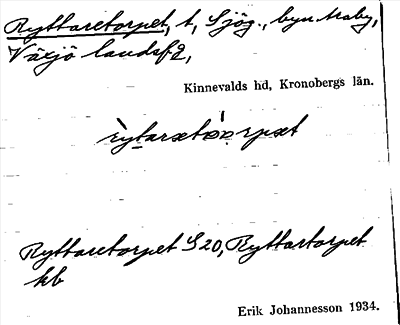 Ryttaretorpet, t, Sjög., byn Araby,
Växjö landsf 2,
Kinnevalds hd, Kronobergs län.
Ryttaretorpet S 20, Ryttartorpet
kb
Erik Johannesson 1934.